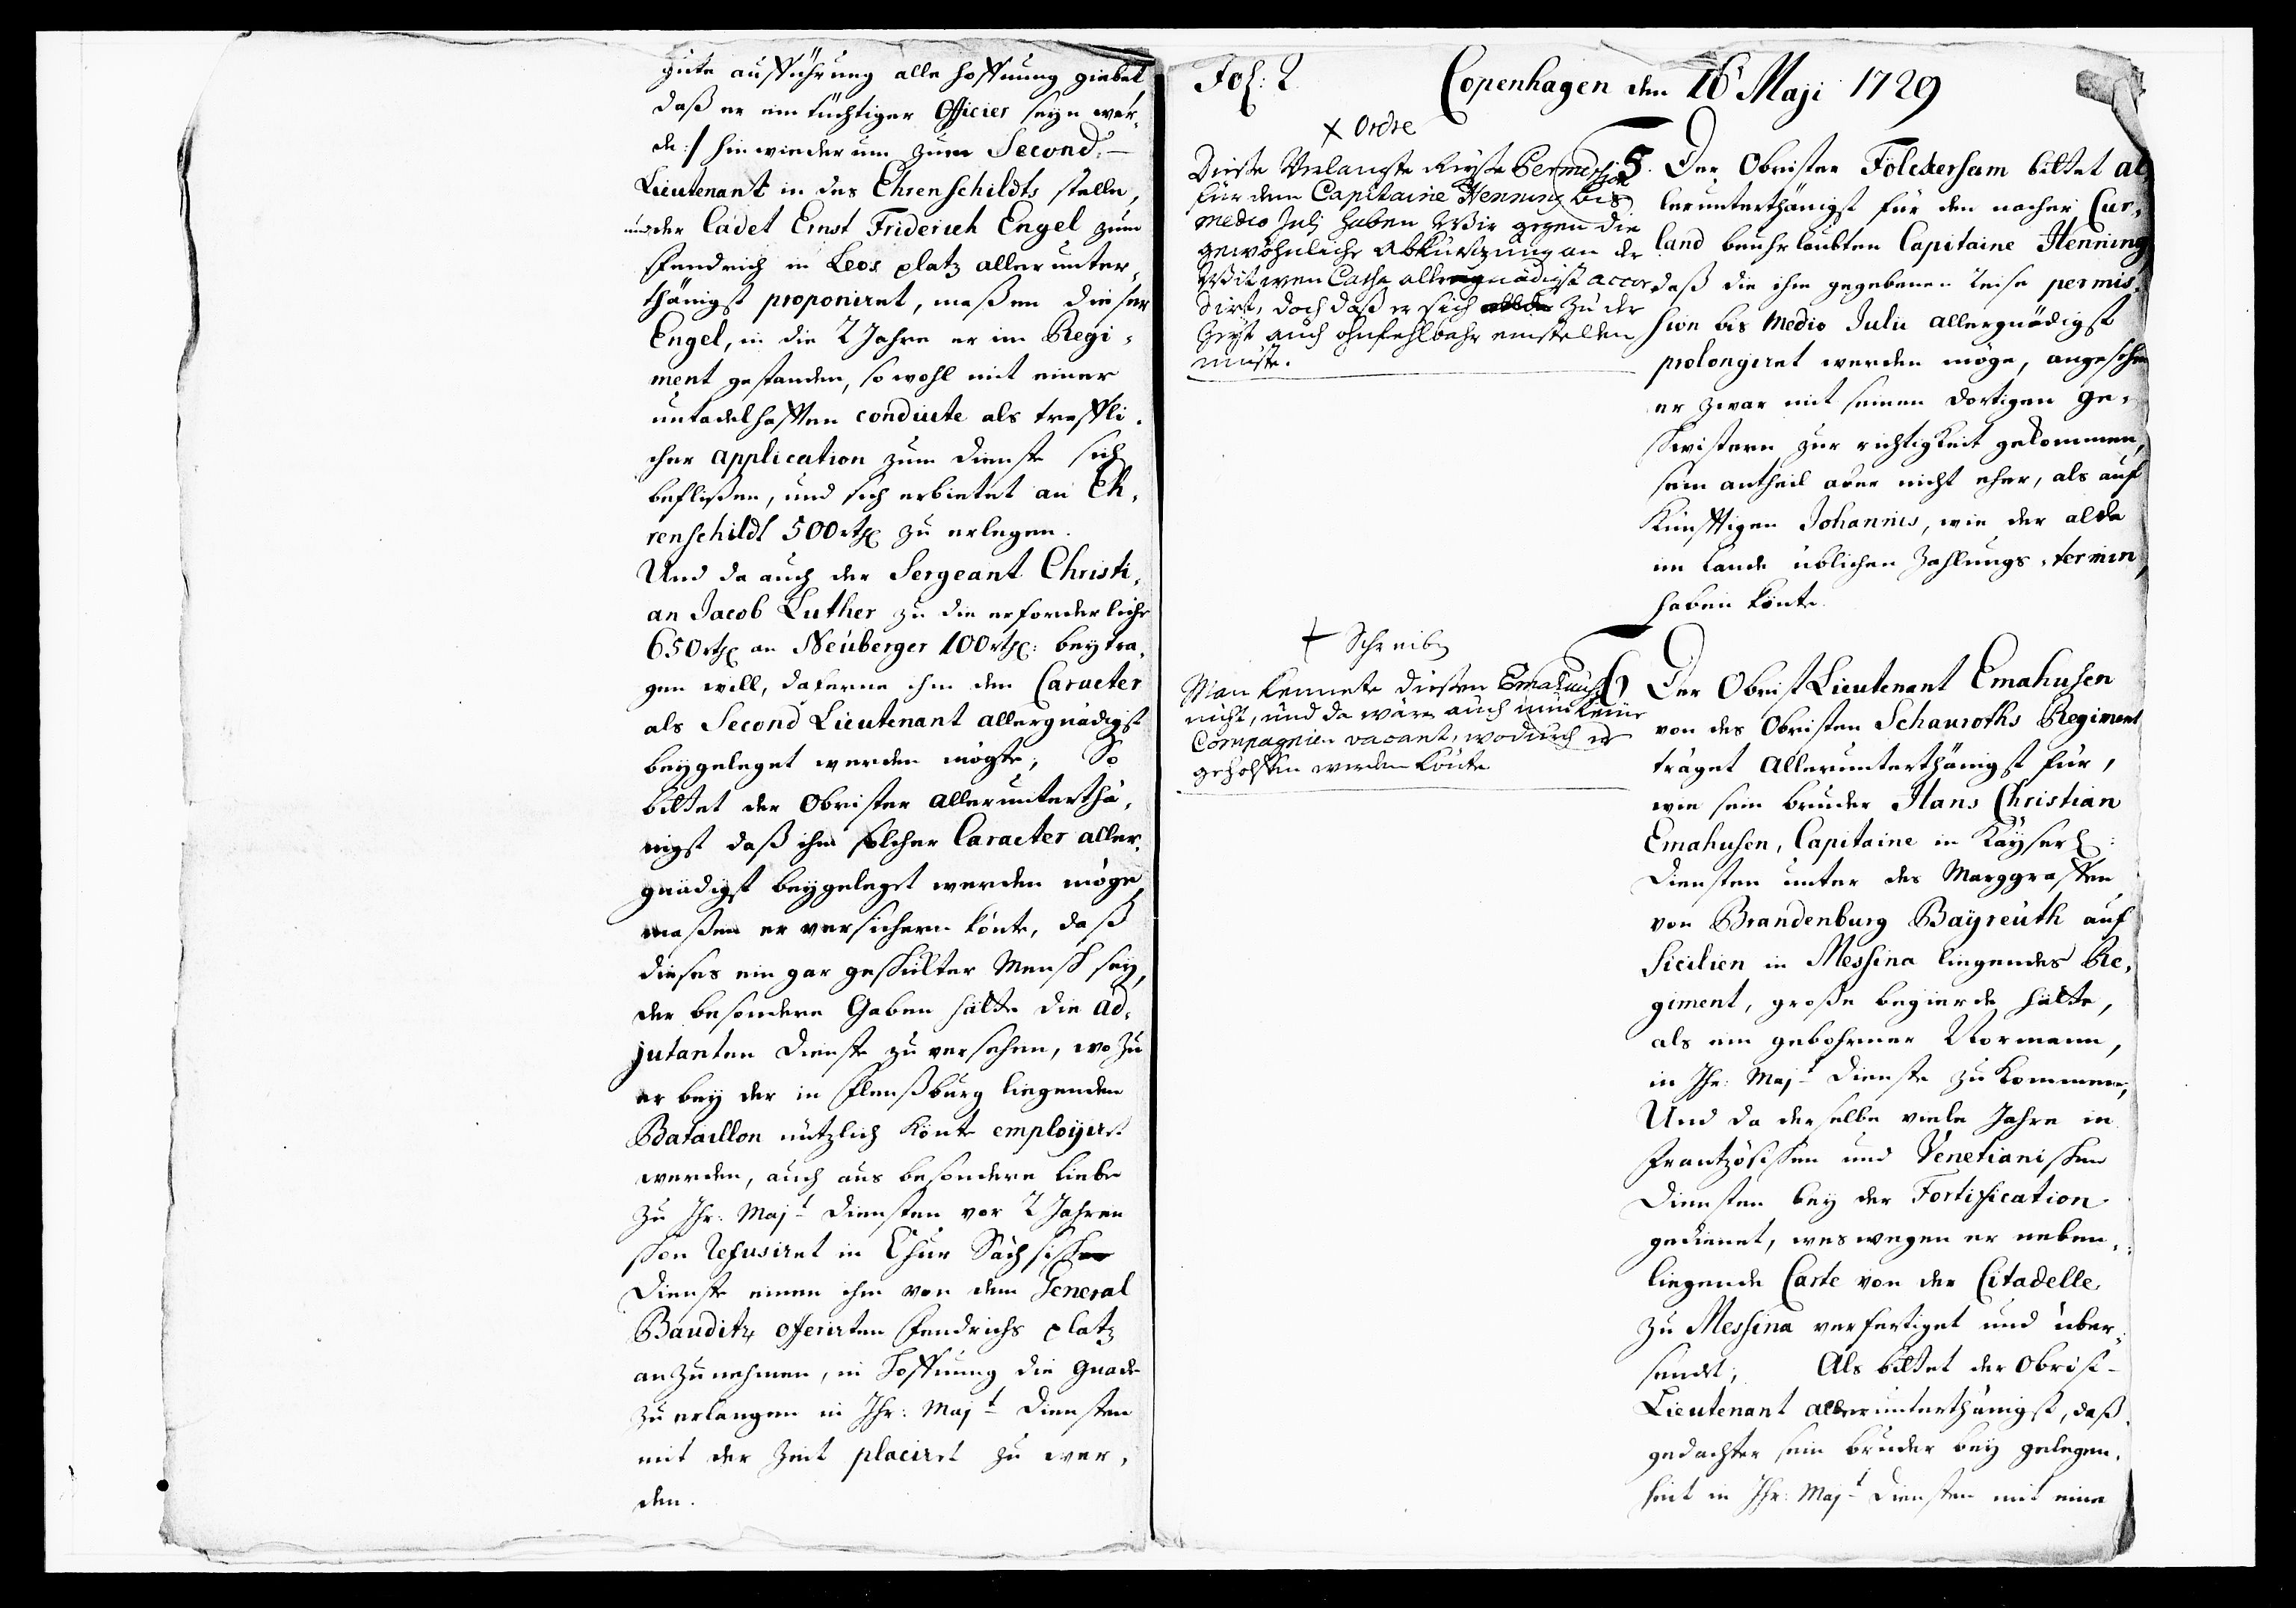 gute aufführung alle hoffnung giebet
daß er ein tüchtiger Officier seyn wer,
de :/ hinwiederum zum Second,
Lieutenant in des Ehrenschildts stelle,
und der Cadet Ernst Friderich Engel zum
Fendrich in Leos platz allerunter,
thänigst proponiret, maßen dieser
Engel, in die 2 Jahre er im Regi,
ment gestanden, so wohl mit einer
untadelhafften conduite als treffli,
cher application zum dienste sich
beflißen, und sich erbietet an Eh,
renschildt 500 rthl zu erlegen.
Und da auch der Sergeant Christi,
an Jacob Luther zu die erforderliche
650 rthl an Neuberger 100 rthl: beytra,
gen will, daferne ihm den Caracter
als Second Lieutenant allergnädigst
beygeleget werden mögte; So
bittet der Obrister allerunterthä,
nigst daß ihm solcher Caracter aller,
gnädigst beygeleget werden möge
maßen er versichern könte, daß
dieses ein gar geschickter Mensch sey,
der besondere Gaben hätte die Ad,
jutanten dienste zu versehen, wozu
er bey der in Flensburg liegenden
Bataillon nützlich könte employiret
werden, auch aus besondere liebe
zu Ihr: Majt diensten vor 2 Jahren
schon refusiret in Chur Sächsische
dienste einen ihm von dem General
Bauditz offerirten Fendrichs platz
anzunehmen, in Hoffnung die Gnade
zu erlangen in Ihr: Majt diensten
mit der Zeit placiret zu wer,
den.
Fol: 2
Copenhagen den 16 Maji 1729
x Ordre
Dieße verlangte Reyse Permission
für dem Capitaine Henning bis
medio Julj haben Wir gegen die
gewöhnliche Abkürtzung an der
Witwen Cassa allergnädigst accor
dirt, doch daß er sich zu der
Zeyt auch ohnfehlbahr einstellen
müste.
5. Der Obrister Fölckersam bittet al,
lerunterthänigst für den nacher Cur,
land beuhrlaubten Capitaine Henning
daß die ihm gegebenen reise permis,
sion bis Medio Julii allergnädigst
prolongiret werden möge, angesehen
er zwar mit seinen dortigen Ge,
schwistern zur richtigkeit gekommen,
sein antheil aber nicht eher, als auf
künfftigen Johannis, wie der alda
im lande üblichen Zahlungs, termin,
haben könte.
+ Schreiben
Man kennete dießen Emahus
nicht, und da wäre auch nun keine
Compagnien vacant, wodurch er
geholffen werden könte
6 Der Obrist Lieutenant Emahusen
von des Obristen Schauroths Regiment
träget allerunterthänigst für,
wie sein bruder Hans Christian
Emahusen, Capitaine in Käyserl:
diensten unter des Marggraffen
von Brandenburg Bayreuth auf
Sicilien in Messina liegendes Re,
giment, große begierde hätte,
als ein gebohrner Normann,
in Ihr: Majt dienste zu kommen,
Und da derselbe viele Jahre in
frantzösischen und Venetianischen
diensten bey der Fortification
gedienet, weswegen er neben,
liegende Carte von der Citadelle
zu Messina verfertiget und über,
sendt; Als bittet der Obrist
Lieutenant allerunterthänigst, daß
gedachter sein bruder bey gelegen,
heit in Ihr: Majt diensten mit eine